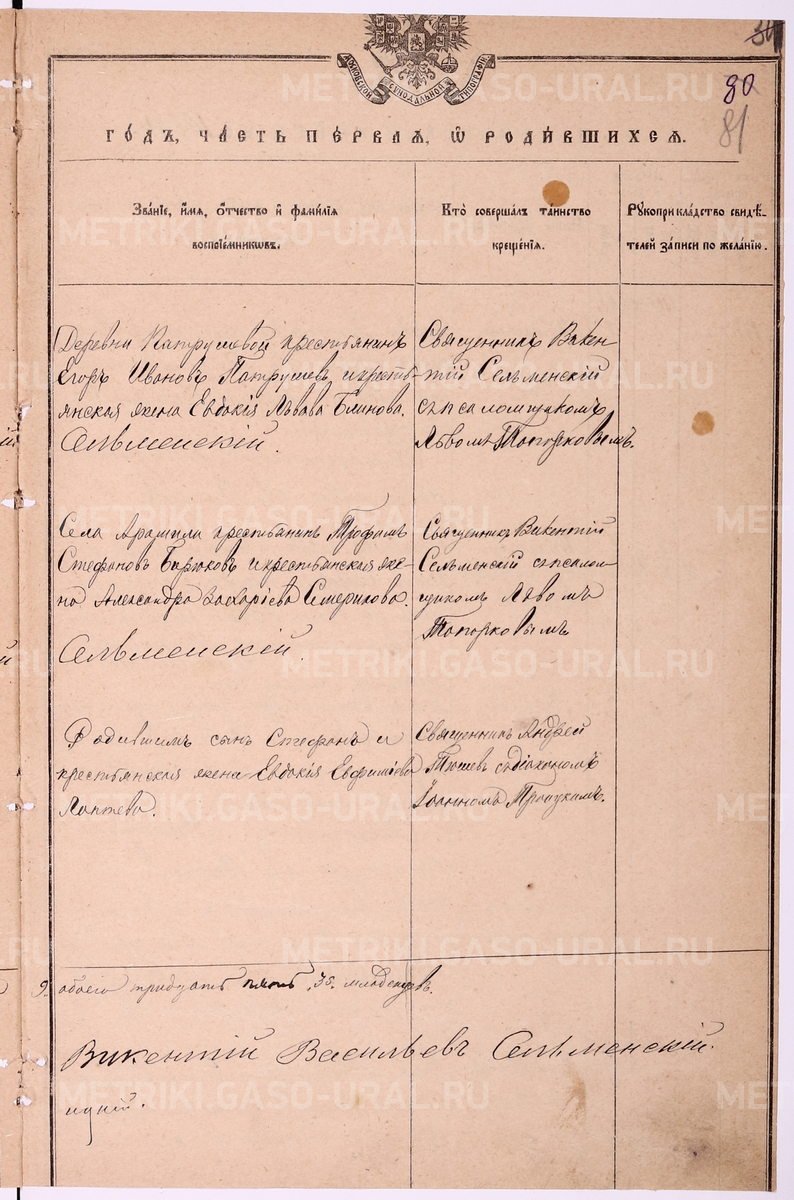 МОСКОВСКОЙ СѴНОДАЛЬНОЙ ТИПОГРАФІИ
34
80
81
ГОДЪ, ЧАСТЬ ПЕРВАЯ, Ѽ РОДИВШИХСЯ.
Званіе, имя, отчество и фамилія
воспріемниковъ.
Кто совершалъ таинство
крещенія.
Рукоприкладство свидѣ-
телей записи по желанію.
Деревни Патрушевой крестьянинъ
Егоръ Ивановъ Патрушевъ и кресть-
янская жена Евдокія Львова Блинова.
Сельменскій.
Священникъ Викен-
тій Сельменскій
съ псаломщикомъ
Львомъ Топорковымъ.
Села Арамили крестьянинъ Трофимъ
Стефановъ Бирюковъ и крестьянская же-
на Александра Захаріева Смерикова.
Сельменскій.
Священникъ Викентій
Сельменскій съ псалом-
щикомъ Львомъ
Топорковымъ
Родившимъ сынъ Стефанъ и
крестьянская жена Евдокія Евфиміева
Лаптева.
Священникъ Андрей
Тюшевъ съ діакономъ
Іоанномъ Троицкимъ.
9. обоего тридцать пять 35. младенцевъ.
Викентій Васильевъ Сельменскій.
цкій.
METRIKI.GASO-URAL.RU